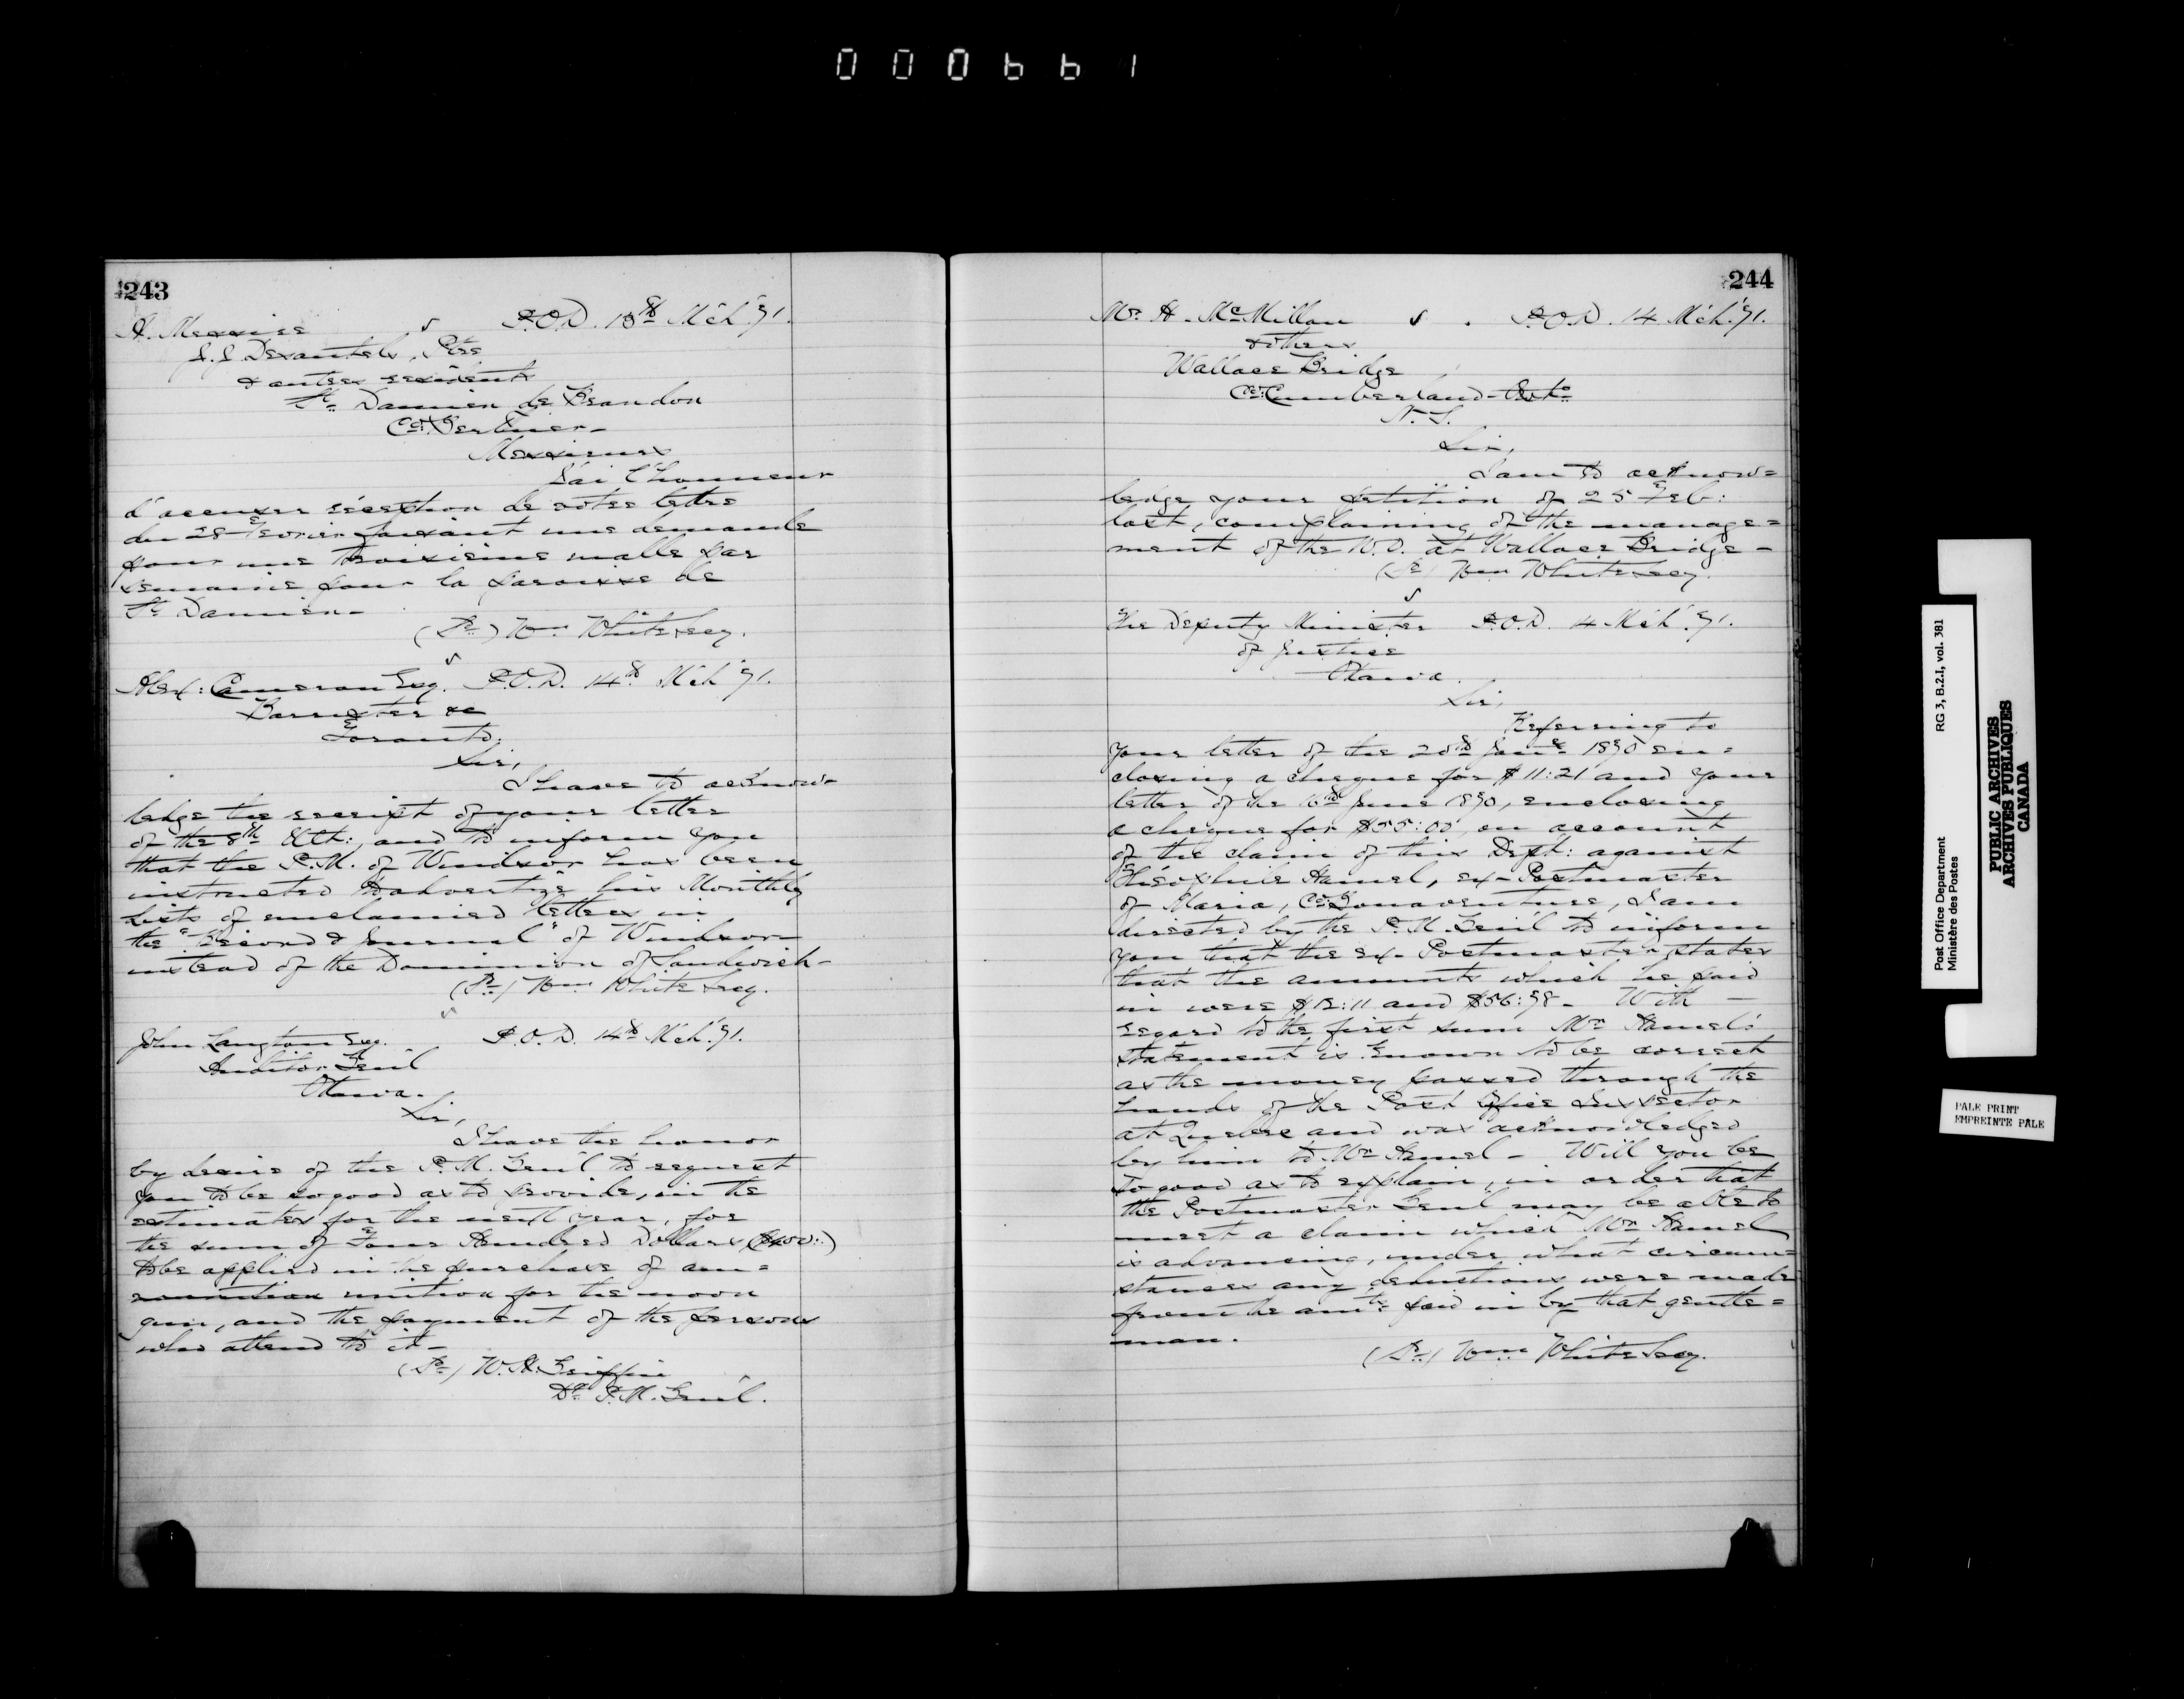 000661
243
A. Messire P.O.D. 13th Mch '71.
J. J. Desautels, Ptre
& autres residents
St. Damien de Brandon
Co. Berthier-
Messieurs
J'ai l'honneur
d'accuser réception de votre lettre
du 28 Fevrier faisant une demande
pour une troisième malle par
semaine pour la paroisse de
St. Damien-
(Sd.) Wm. White Secy.
Alex: Cameron Esq. P.O.D. 14th Mch '71.
Barrister &c
Toronto.
Sir,
I have to acknow-
ledge the receipt of your letter
of the 8th Ult:, and to inform you
that the P.M. of Windsor has been
instructed to advertize his Monthly
Lists of unclaimed letters in
the "Record & Journal" of Windsor
instead of the Dominion of Sandwich-
(Sd.) Wm. White Secy.
John Langton Esq. P.O.D. 14th Mch '71.
Auditor Genl
Ottawa.
Sir,
I have the honor
by desire of the P.M. Genl to request
you to be so good as to provide, in the
estimates for the next year, for
the sum of Four Hundred Dollars ($400:)
to be applied in the purchase of am=
munition for the noon
gun, and the payment of the persons
who attend to it-
(Sd.) W. H. Griffin
Dy. P.M. Genl.
244
Mr. A. McMillan P.O.D. 14 Mch. '71.
& others
Wallace Bridge
Co. Cumberland
N.S.
Sir,
I am to acknow=
ledge your petition of 25 Feb:
last, complaining of the manage=
ment of the W.O. at Wallace Bridge-
(Sd.) Wm White Secy.
The Deputy Minister P.O.D. 14 Mch '71.
of Justice
Ottawa.
Sir,
Referring to
your letter of the 20th 1870 en=
closing a cheque for $11:21 and your
letter of the 16th June 1870, enclosing
a cheque for $55:00, on account
of the claim of this Dept: against
Théophile Hamel, ex-Postmaster
of Maria, Co. Bonaventure, I am
directed by the P.M. Genl to inform
you that the ex-Postmaster states
that the amounts which he paid
in were and $56:98- With
regard to the first sum Mr. Hamel's
statement is known to be correct
as the money passed through the
hands of the Post Office Inspector
at Quebec and was acknowledged
by him to Mr Hamel- Will you be
so good as to explain, in order that
the Postmaster Genl may be able to
meet a claim which Mr. Hamel
is advancing, under what circum=
stances any deductions were made
from the amts. paid in by that gentle=
man.
(Sd.) Wm. White Secy.
Post Office Department RG 3, B.2.I, vol. 381
Ministère des Postes
PUBLIC ARCHIVES
ARCHIVES PUBLIQUES
CANADA
PALE PRINT
EMPREINTE PALE